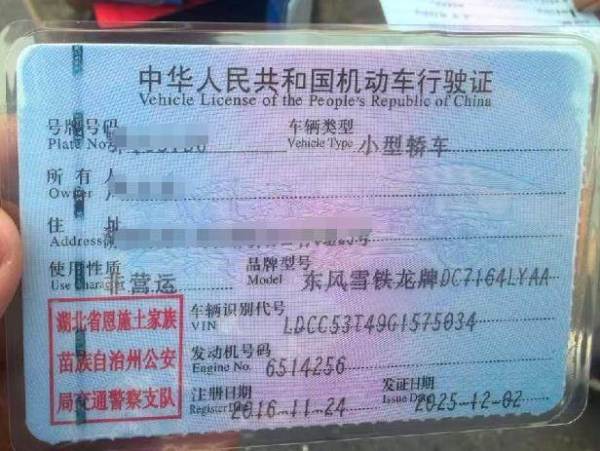 中华人民共和国机动车行驶证
Vehicle License of the People's Republic of China
号牌号码
Plate No.
车辆类型
Vehicle Type
小型轿车
所有人
Owner
住址
Address
使用性质
Use Character
非营运
品牌型号
Model
东风雪铁龙牌DC7164LYAA
湖北省恩施土家族
苗族自治州公安
局交通警察支队
车辆识别代号
VIN
LDCC53T49G1575034
发动机号码
Engine No.
6514256
注册日期
Register Date
2016-11-24
发证日期
Issue Date
2025-12-02